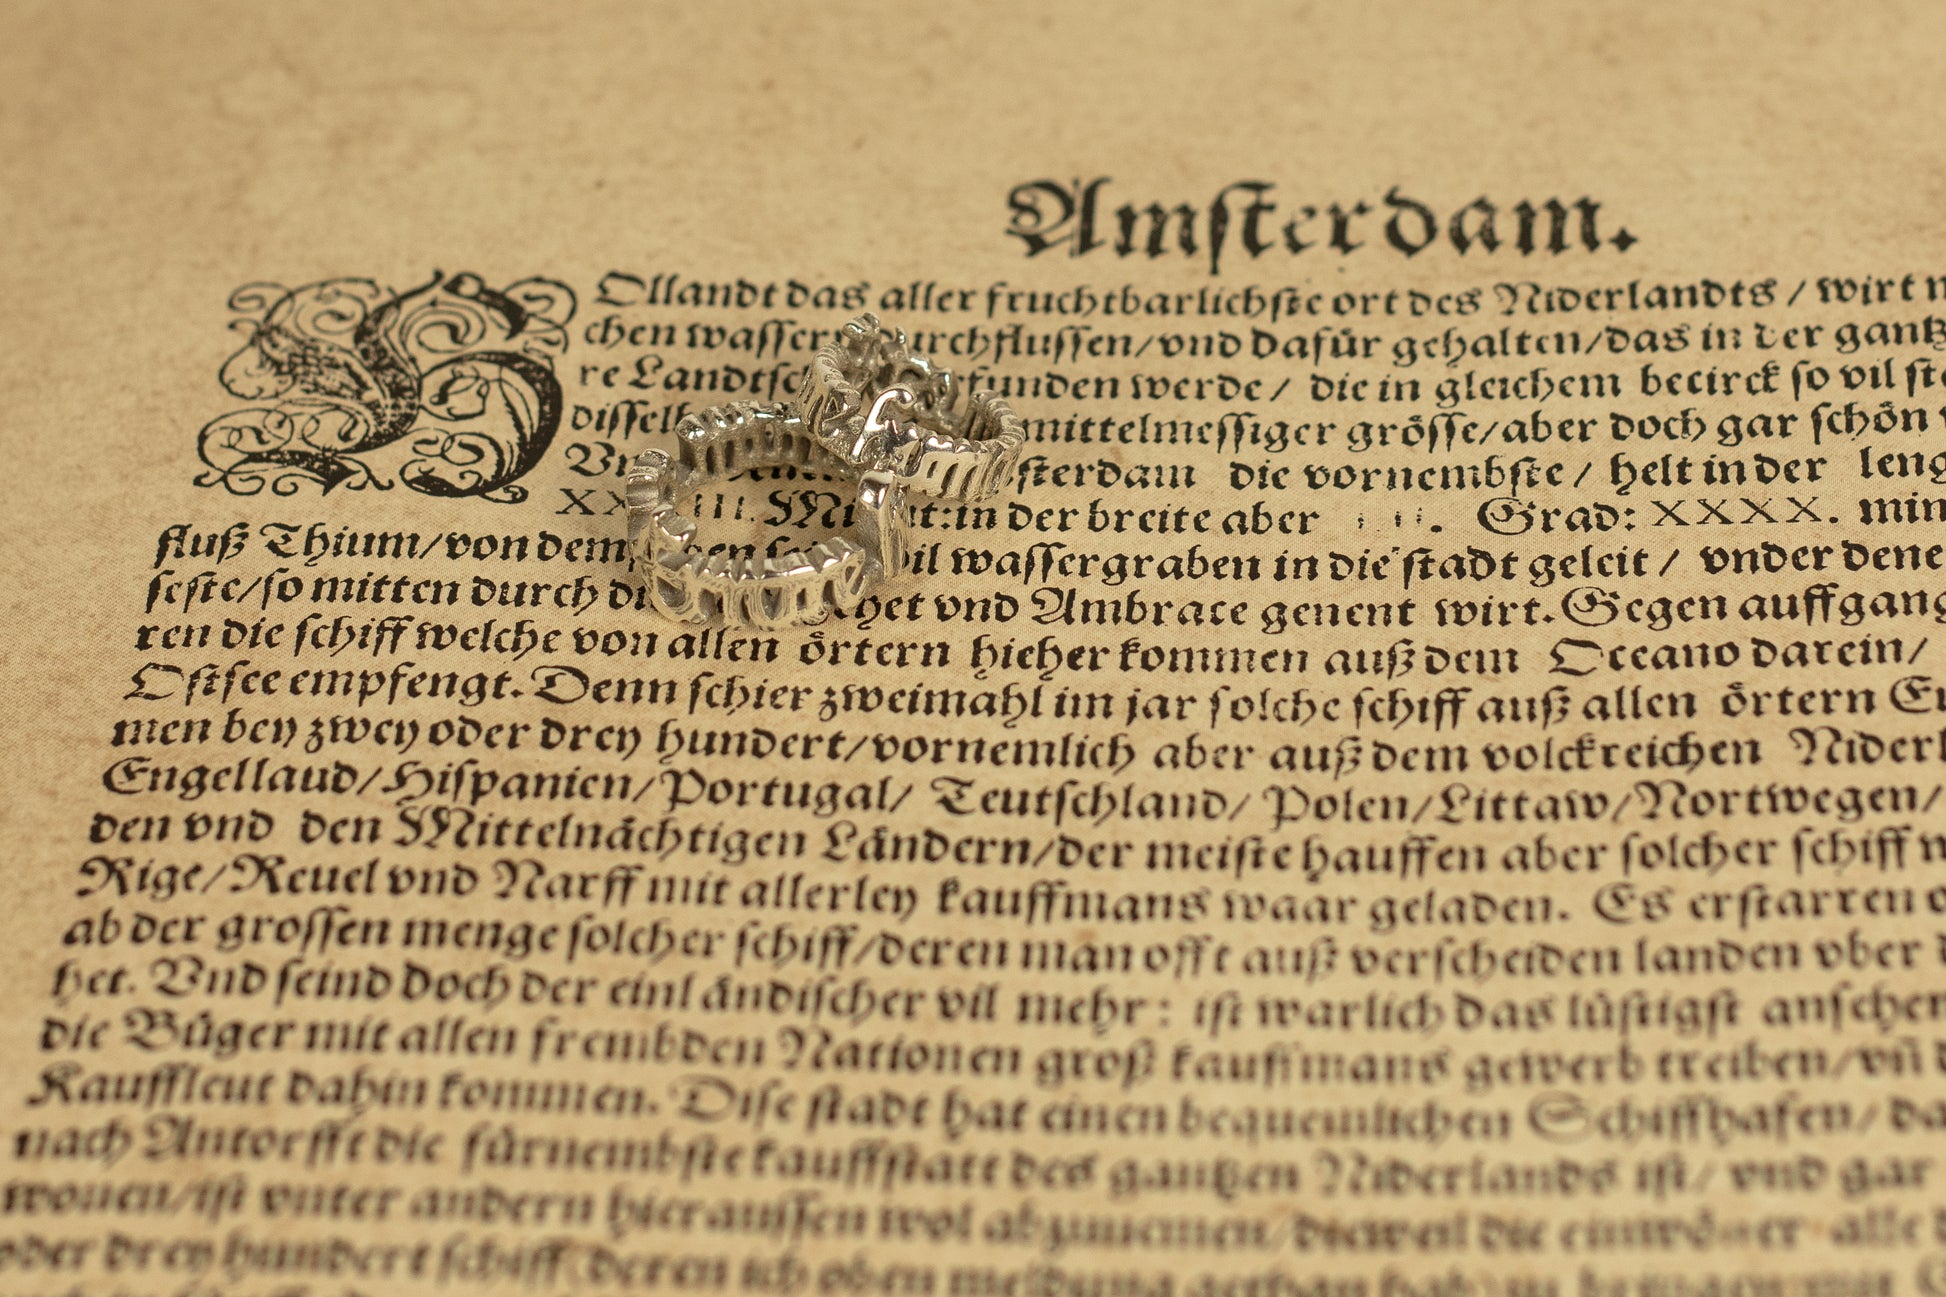 Amsterdam.
Ollandt das aller fruchtbarlichste ort des Niderlandts / wirt
chen wassern durchflussen/vnd dafür gehalten/das in der gantz
re Landtsch funden werde / die in gleichem becirck so vil
dissel mittelmessiger grösse/aber doch gar schön
sterdam die vornembste / helt in der leng
in der breite aber Grad: XXXX. min
fluß Thium/von dem vil wassergraben in die stadt geleit / vnder dene
feste/so mitten durch di chet vnd Ambrace genent wirt. Gegen auffgang
ren die schiff welche von allen örtern hieher kommen auß dem Oceano darein/
Ostsee empfengt. Denn schier zweimahl im jar solche schiff auß allen örtern
men bey zwey oder drey hundert/vornemlich aber auß dem volckreichen Niderl
Engellaud/Hispanien/Portugal/ Teutschland/ Polen/Littaw/Nortwegen/
den vnd den Mittelnächtigen Ländern/der meiste hauffen aber solcher schiff
Rige/Reuel vnd Narff mit allerley kauffmans waar geladen. Es erstarren
ab der grossen menge solcher schiff/deren man offt auß verscheiden landen vber
het. Vnd seind doch der einländischer vil mehr: ist warlich das lüstigst ansehen
die Büger mit allen frembden Nationen groß kauffmans gewerb treiben/vñ
Kauffleut dahin kommen. Dise stadt hat einen bequemlichen Schiffhafen/
nach Antorff die fürnembste kauffstatt des gantzen Niderlands ist/ vnd gar
wonen/ist vnter andern hieraussen wol abzunemen/dieweil die einwöner alle
oder drey hundert schiff deren ich oben meldung gethan